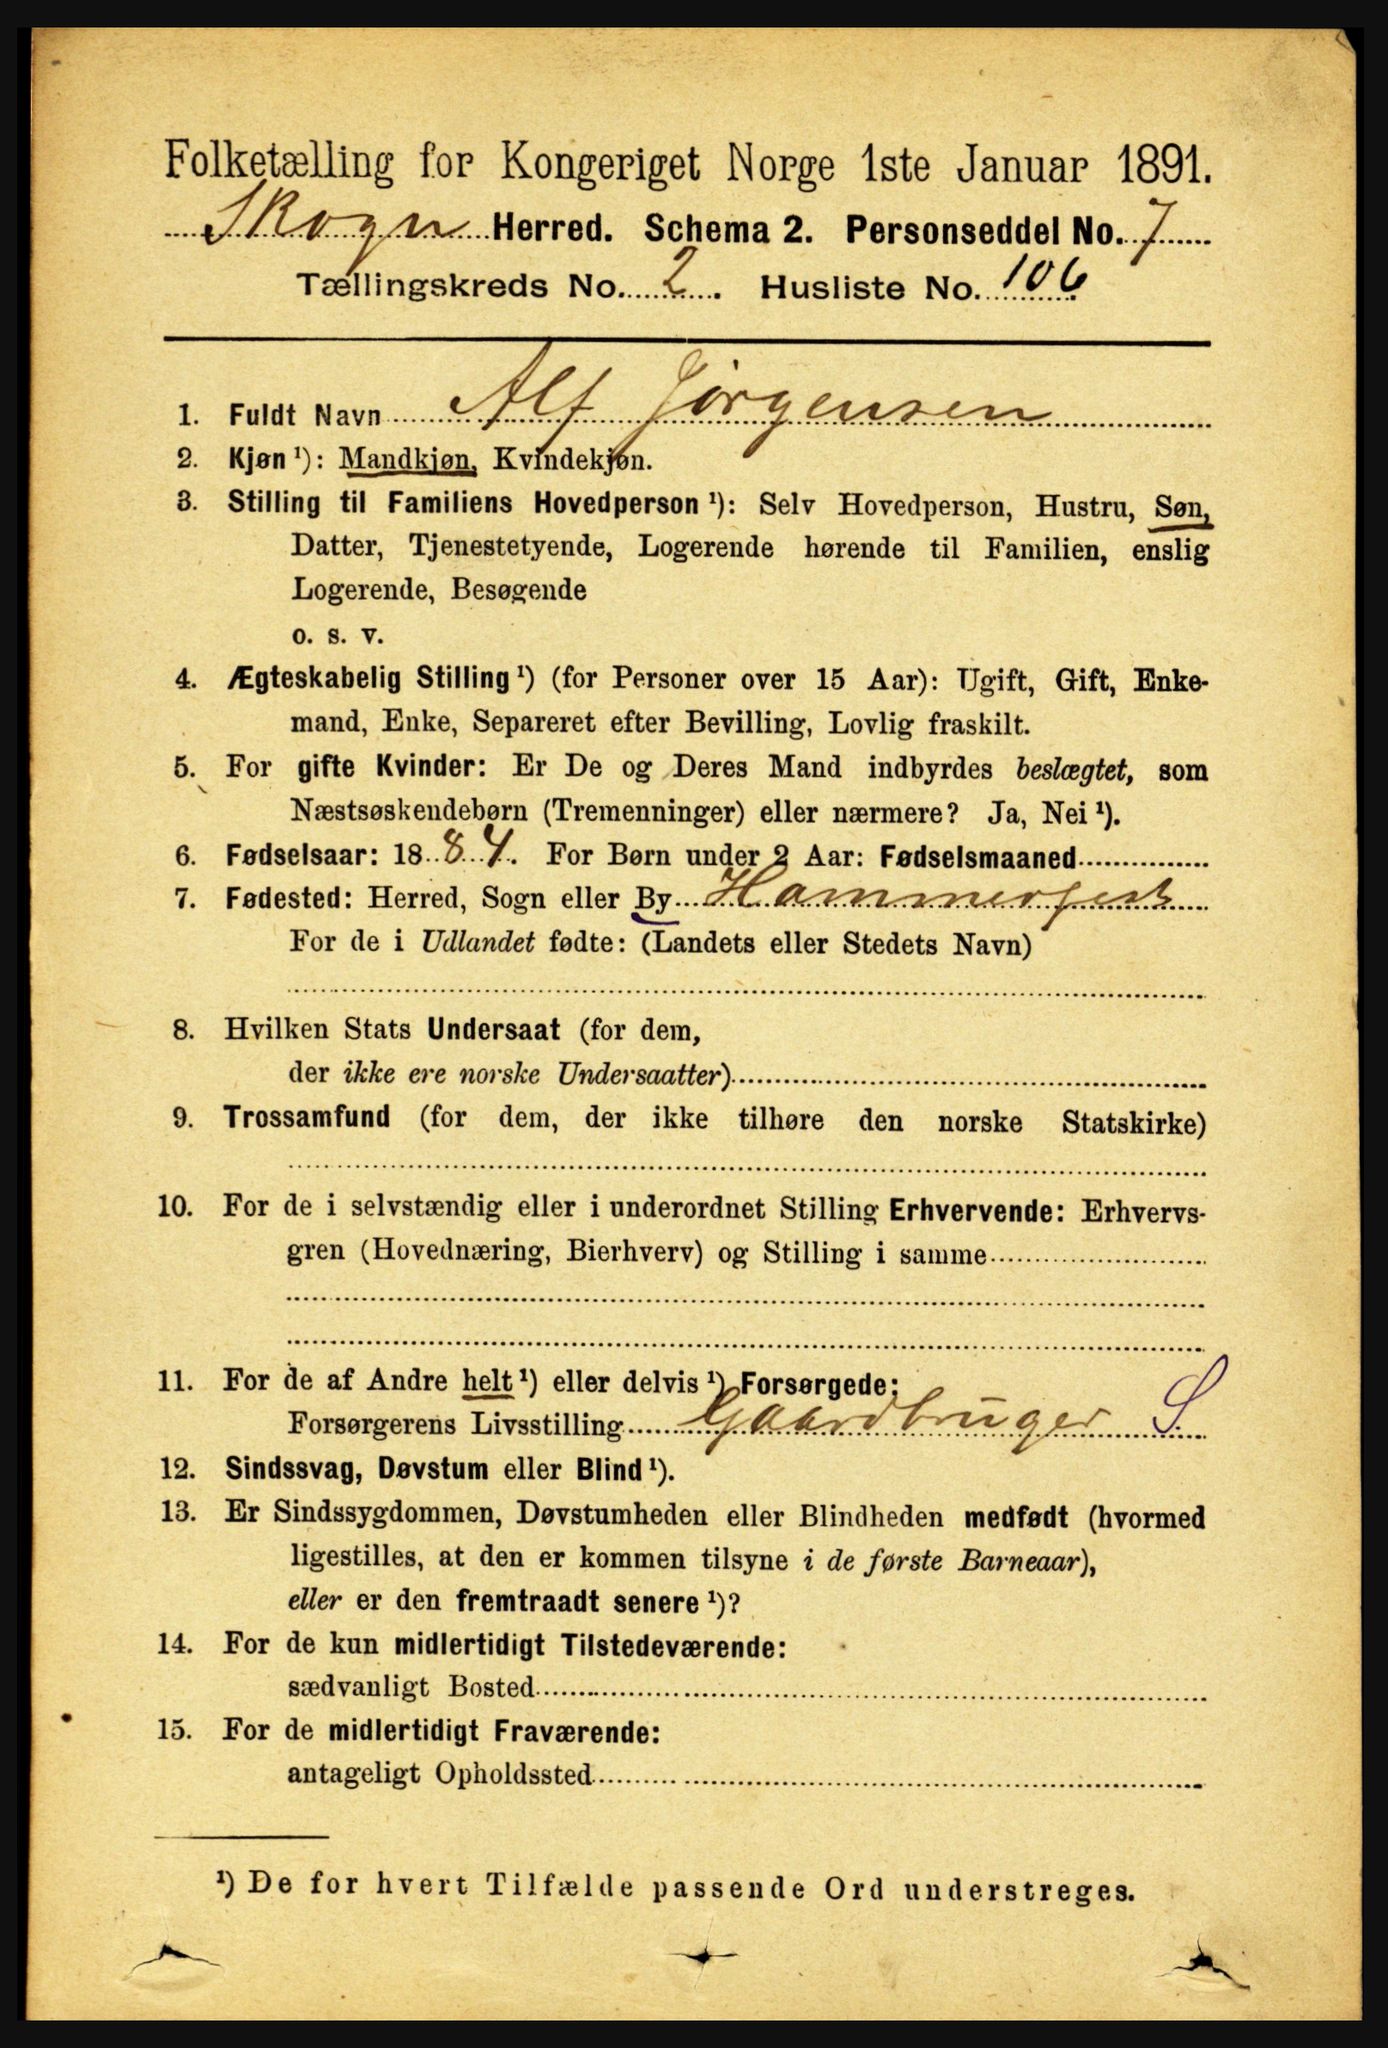 Folketælling for Kongeriget Norge 1ste Januar 1891.
Skogn Herred. Schema 2. Personseddel No. 7
Tællingskreds No. 2. Husliste No. 106
1. Fuldt Navn Alf Jörgensen
2. Kjøn ¹): Mandkjøn, Kvindekjøn.
3. Stilling til Familiens Hovedperson ¹): Selv Hovedperson, Hustru, Søn,
Datter, Tjenestetyende, Logerende hørende til Familien, enslig
Logerende, Besøgende
o. s. v.
4. Ægteskabelig Stilling ¹) (for Personer over 15 Aar): Ugift, Gift, Enke-
mand, Enke, Separeret efter Bevilling, Lovlig fraskilt.
5. For gifte Kvinder: Er De og Deres Mand indbyrdes beslægtet, som
Næstsøskendebørn (Tremenninger) eller nærmere? Ja, Nei ¹).
6. Fødselsaar: 1884. For Børn under 2 Aar: Fødselsmaaned
7. Fødested: Herred, Sogn eller By Hammerfest
For de i Udlandet fødte: (Landets eller Stedets Navn)
8. Hvilken Stats Undersaat (for dem,
der ikke ere norske Undersaatter)
9. Trossamfund (for dem, der ikke tilhøre den norske Statskirke)
10. For de i selvstændig eller i underordnet Stilling Erhvervende: Erhvervs-
gren (Hovednæring, Bierhverv) og Stilling i samme
11. For de af Andre helt ¹) eller delvis ¹) Forsørgede:
Forsørgerens Livsstilling Gaardbruger S.
12. Sindssvag, Døvstum eller Blind ¹).
13. Er Sindssygdommen, Døvstumheden eller Blindheden medfødt (hvormed
ligestilles, at den er kommen tilsyne i de første Barneaar),
eller er den fremtraadt senere ¹)?
14. For de kun midlertidigt Tilstedeværende:
sædvanligt Bosted
15. For de midlertidigt Fraværende:
antageligt Opholdssted
¹) De for hvert Tilfælde passende Ord understreges.